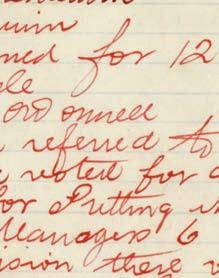 ned for 12
O'Donnell
referred to
voted for
for Putting
Managers 6
ision there